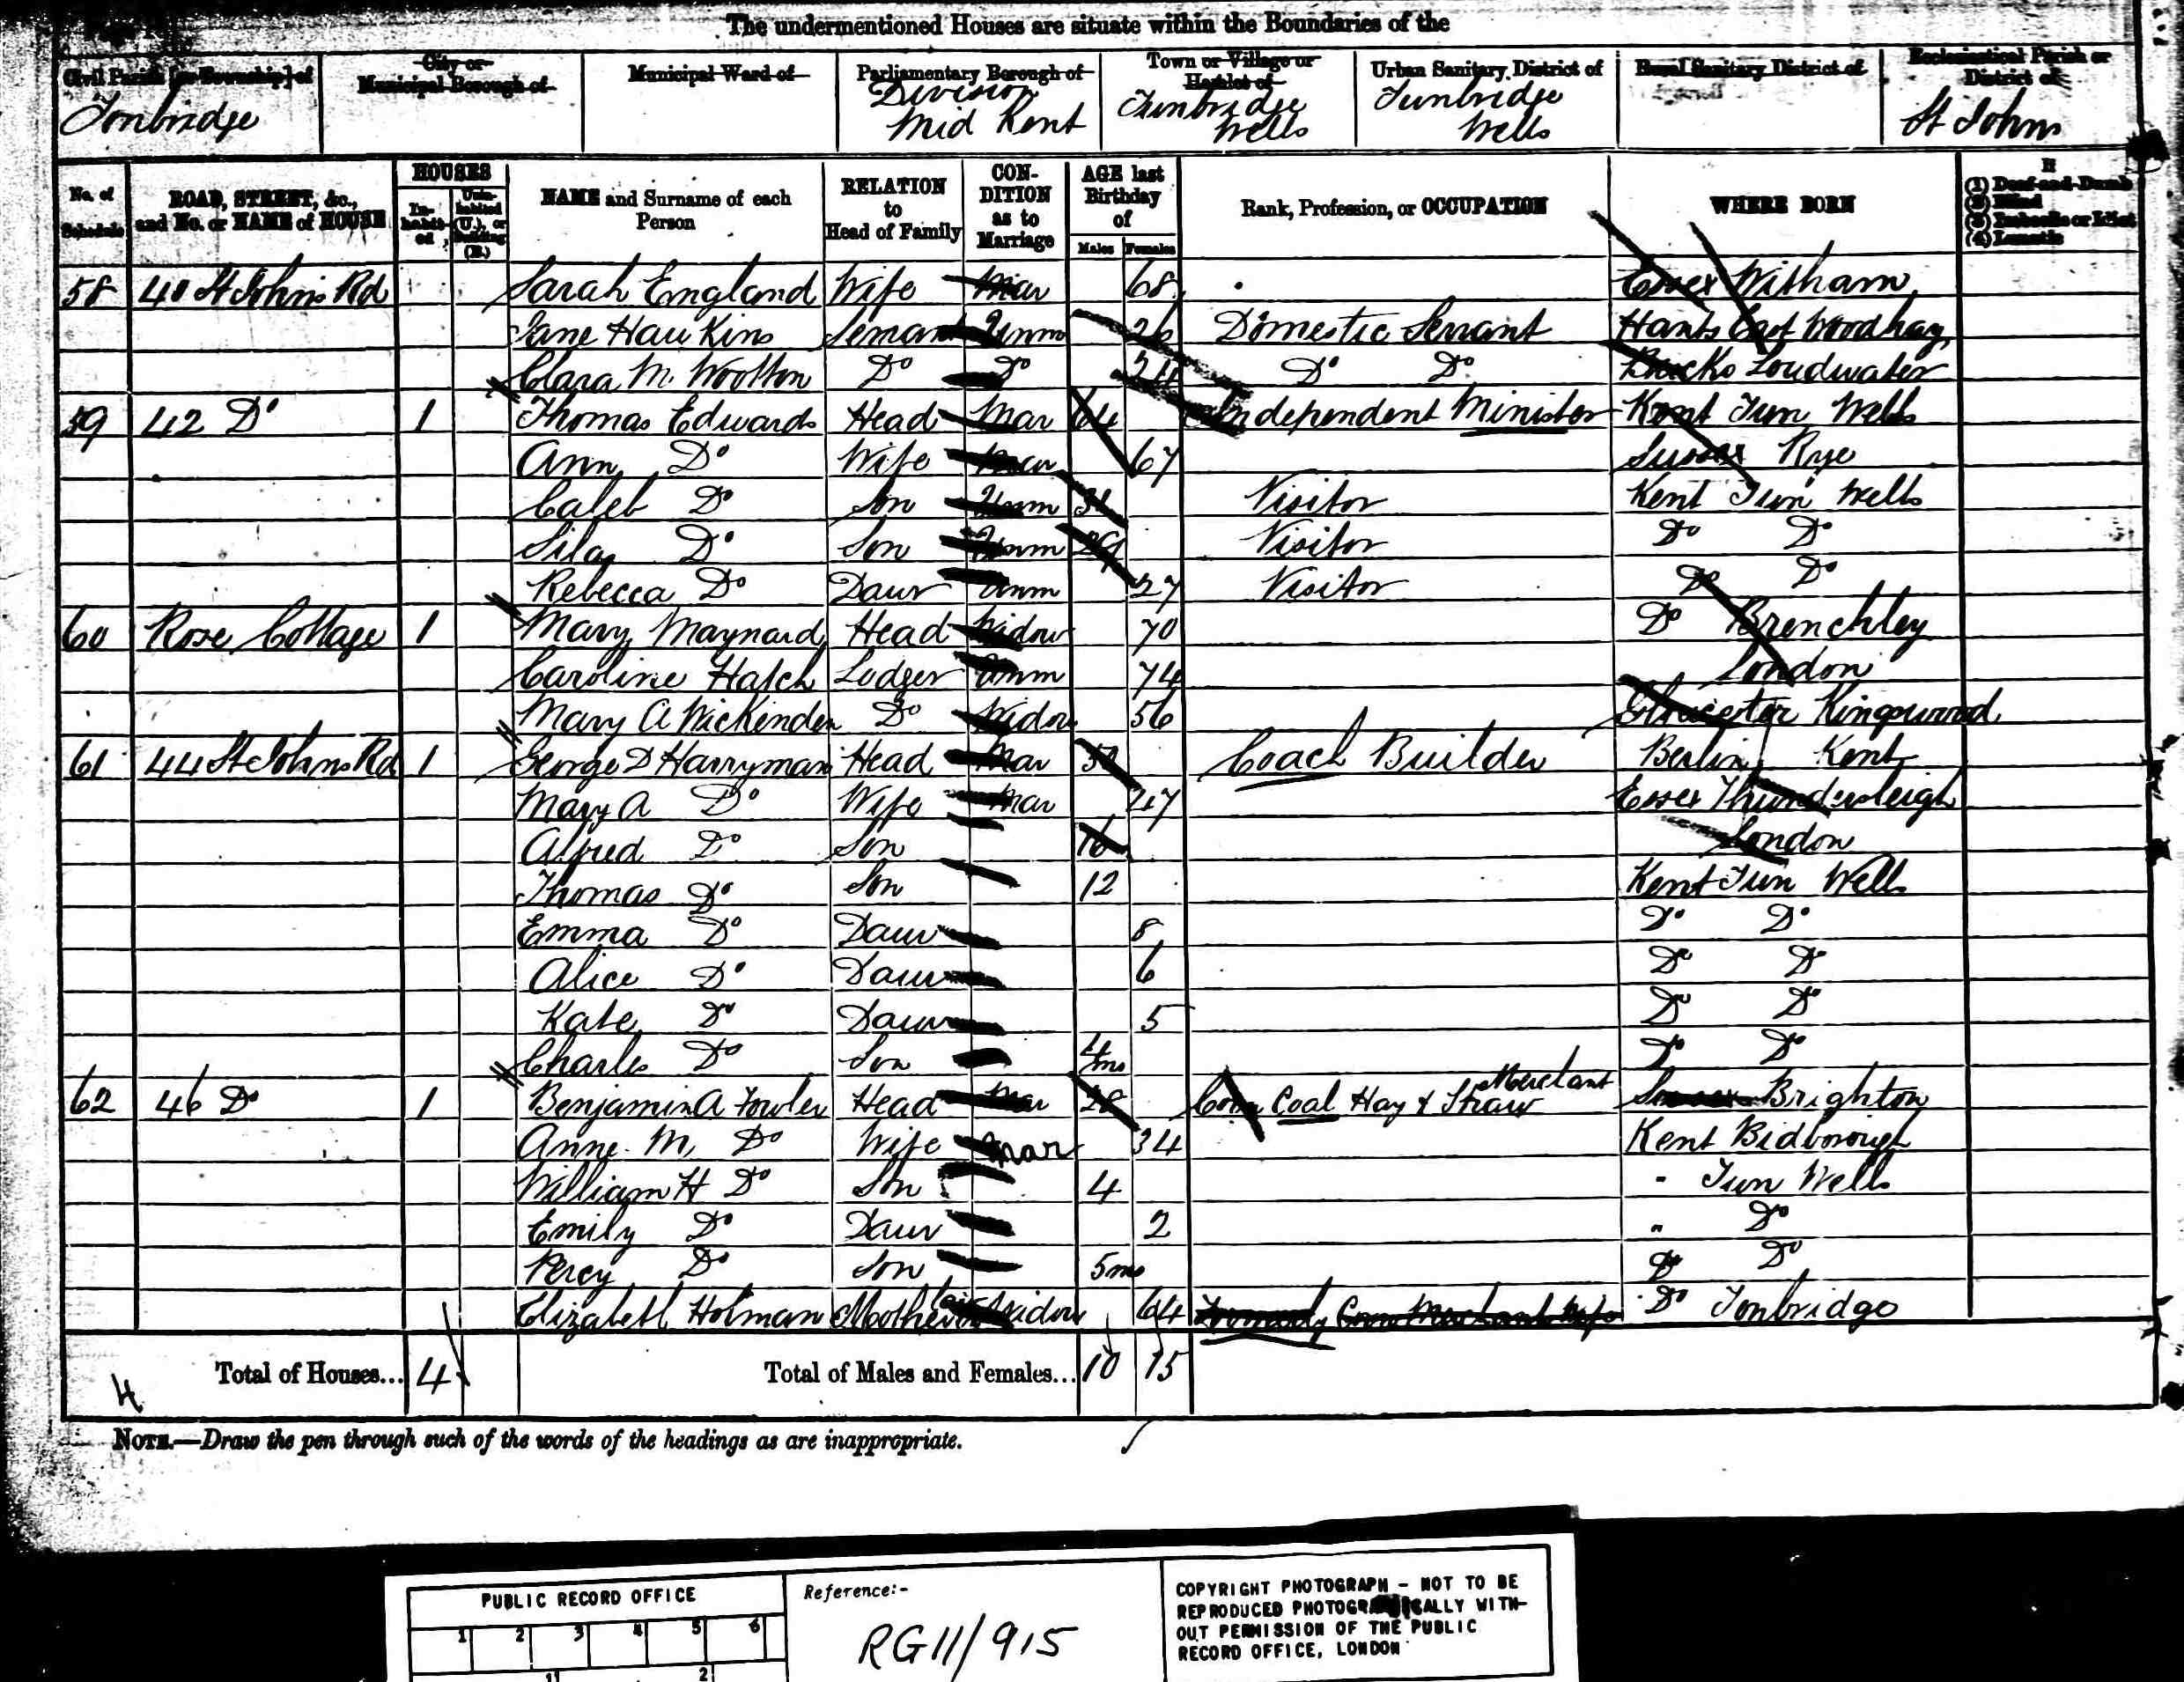 The undermentioned Houses are situate within the Boundaries of the
Civil Parish [or Township] of
City or Municipal Borough of
Municipal Ward of
Parliamentary Borough of
Town or Village or Hamlet of
Urban Sanitary District of
Rural Sanitary District of
Ecclesiastical Parish or District of
Tonbridge
Division Mid Kent
Tunbridge Wells
Tunbridge Wells
St Johns
No. of Schedule
ROAD, STREET, &c., and No. or NAME of HOUSE
HOUSES
In-habit-ed
Unin-habited (U.), or Building (B.)
NAME and Surname of each Person
RELATION to Head of Family
CON-DITION as to Marriage
AGE last Birthday of
Males Females
Rank, Profession, or OCCUPATION
WHERE BORN
(1) Deaf-and-Dumb
(2) Blind
(3) Imbecile or Idiot
(4) Lunatic
58 40 St Johns Rd Sarah England Wife Mar 68 Essex Witham
Jane Hawkins Servant Unm 26 Domestic Servant Hants East Woodhay
Clara M. Wootton Do Do 24 Do Do Bucks Loudwater
59 42 Do 1 Thomas Edwards Head Mar 64 Independent Minister Kent Tun Wells
Ann Do Wife Mar 67 Sussex Rye
Caleb Do Son Unm Visitor Kent Tun Wells
Silas Do Son Unm 29 Visitor Do Do
Rebecca Do Daur Unm 27 Visitor Do Do
60 Rose Cottage 1 Mary Maynard Head Widow 70 Do Brenchley
Caroline Hatch Lodger Unm 74 London
Mary A Wickenden Do Widow 56 Gloucester Kingswood
61 44 St Johns Rd 1 George D Harryman Head Mar Coach Builder Berlin Kent
Mary A Do Wife Mar 47 Essex Thundersleigh
Alfred Do Son 16 London
Thomas Do Son 12 Kent Tun Wells
Emma Do Daur 8 Do Do
Alice Do Daur 6 Do Do
Kate Do Daur 5 Do Do
Charles Do Son 4ms Do Do
62 46 Do 1 Benjamin A Fowler Head Mar 28 Corn Coal Hay & Straw Merchant Sussex Brighton
Anne M. Do Wife Mar 34 Kent Bidborough
William H Do Son 4 " Tun Wells
Emily Do Daur 2 " Do
Percy Do Son 5ms Do Do
Elizabeth Holman Mother in law Widow 64 Formerly Corn Merchants Wife Do Tonbridge
Total of Houses... 4 Total of Males and Females... 10 15
NOTE.—Draw the pen through such of the words of the headings as are inappropriate.
PUBLIC RECORD OFFICE
1 2 3 4 5 6
1 2
Reference:-
RG11/915
COPYRIGHT PHOTOGRAPH - NOT TO BE
REPRODUCED PHOTOGRAPHICALLY WITH-
OUT PERMISSION OF THE PUBLIC
RECORD OFFICE, LONDON